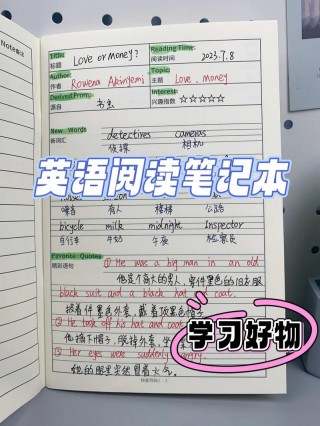 Note备注
Title: Love or money? Reading Time:
标题 阅读时间 2023.7.8
Author: Topic
作者 Rowena Akinyemi 主题 Love、money
Derived From: Interest:
源自 书虫 兴趣指数 ☆☆☆☆☆
New Words detectives cameras
新词汇 侦探 相机
英语阅读笔记本
噪音 有人 楼梯 公路
bicycle milk midnight Inspector
自行车 牛奶 午夜 检察员
Favorite Quotes: ① He was a big man in an old
精彩语句 他是个高大的男人，穿件黑色的旧衣服
black suit and a black hat coat.
披着件黑色外套，戴着顶黑色帽子
② He took off his hat and coat
他摘下帽子，脱掉外套，坐
学习好物
③ Her eyes were suddenly angry.
她的眼里突然冒着火气。